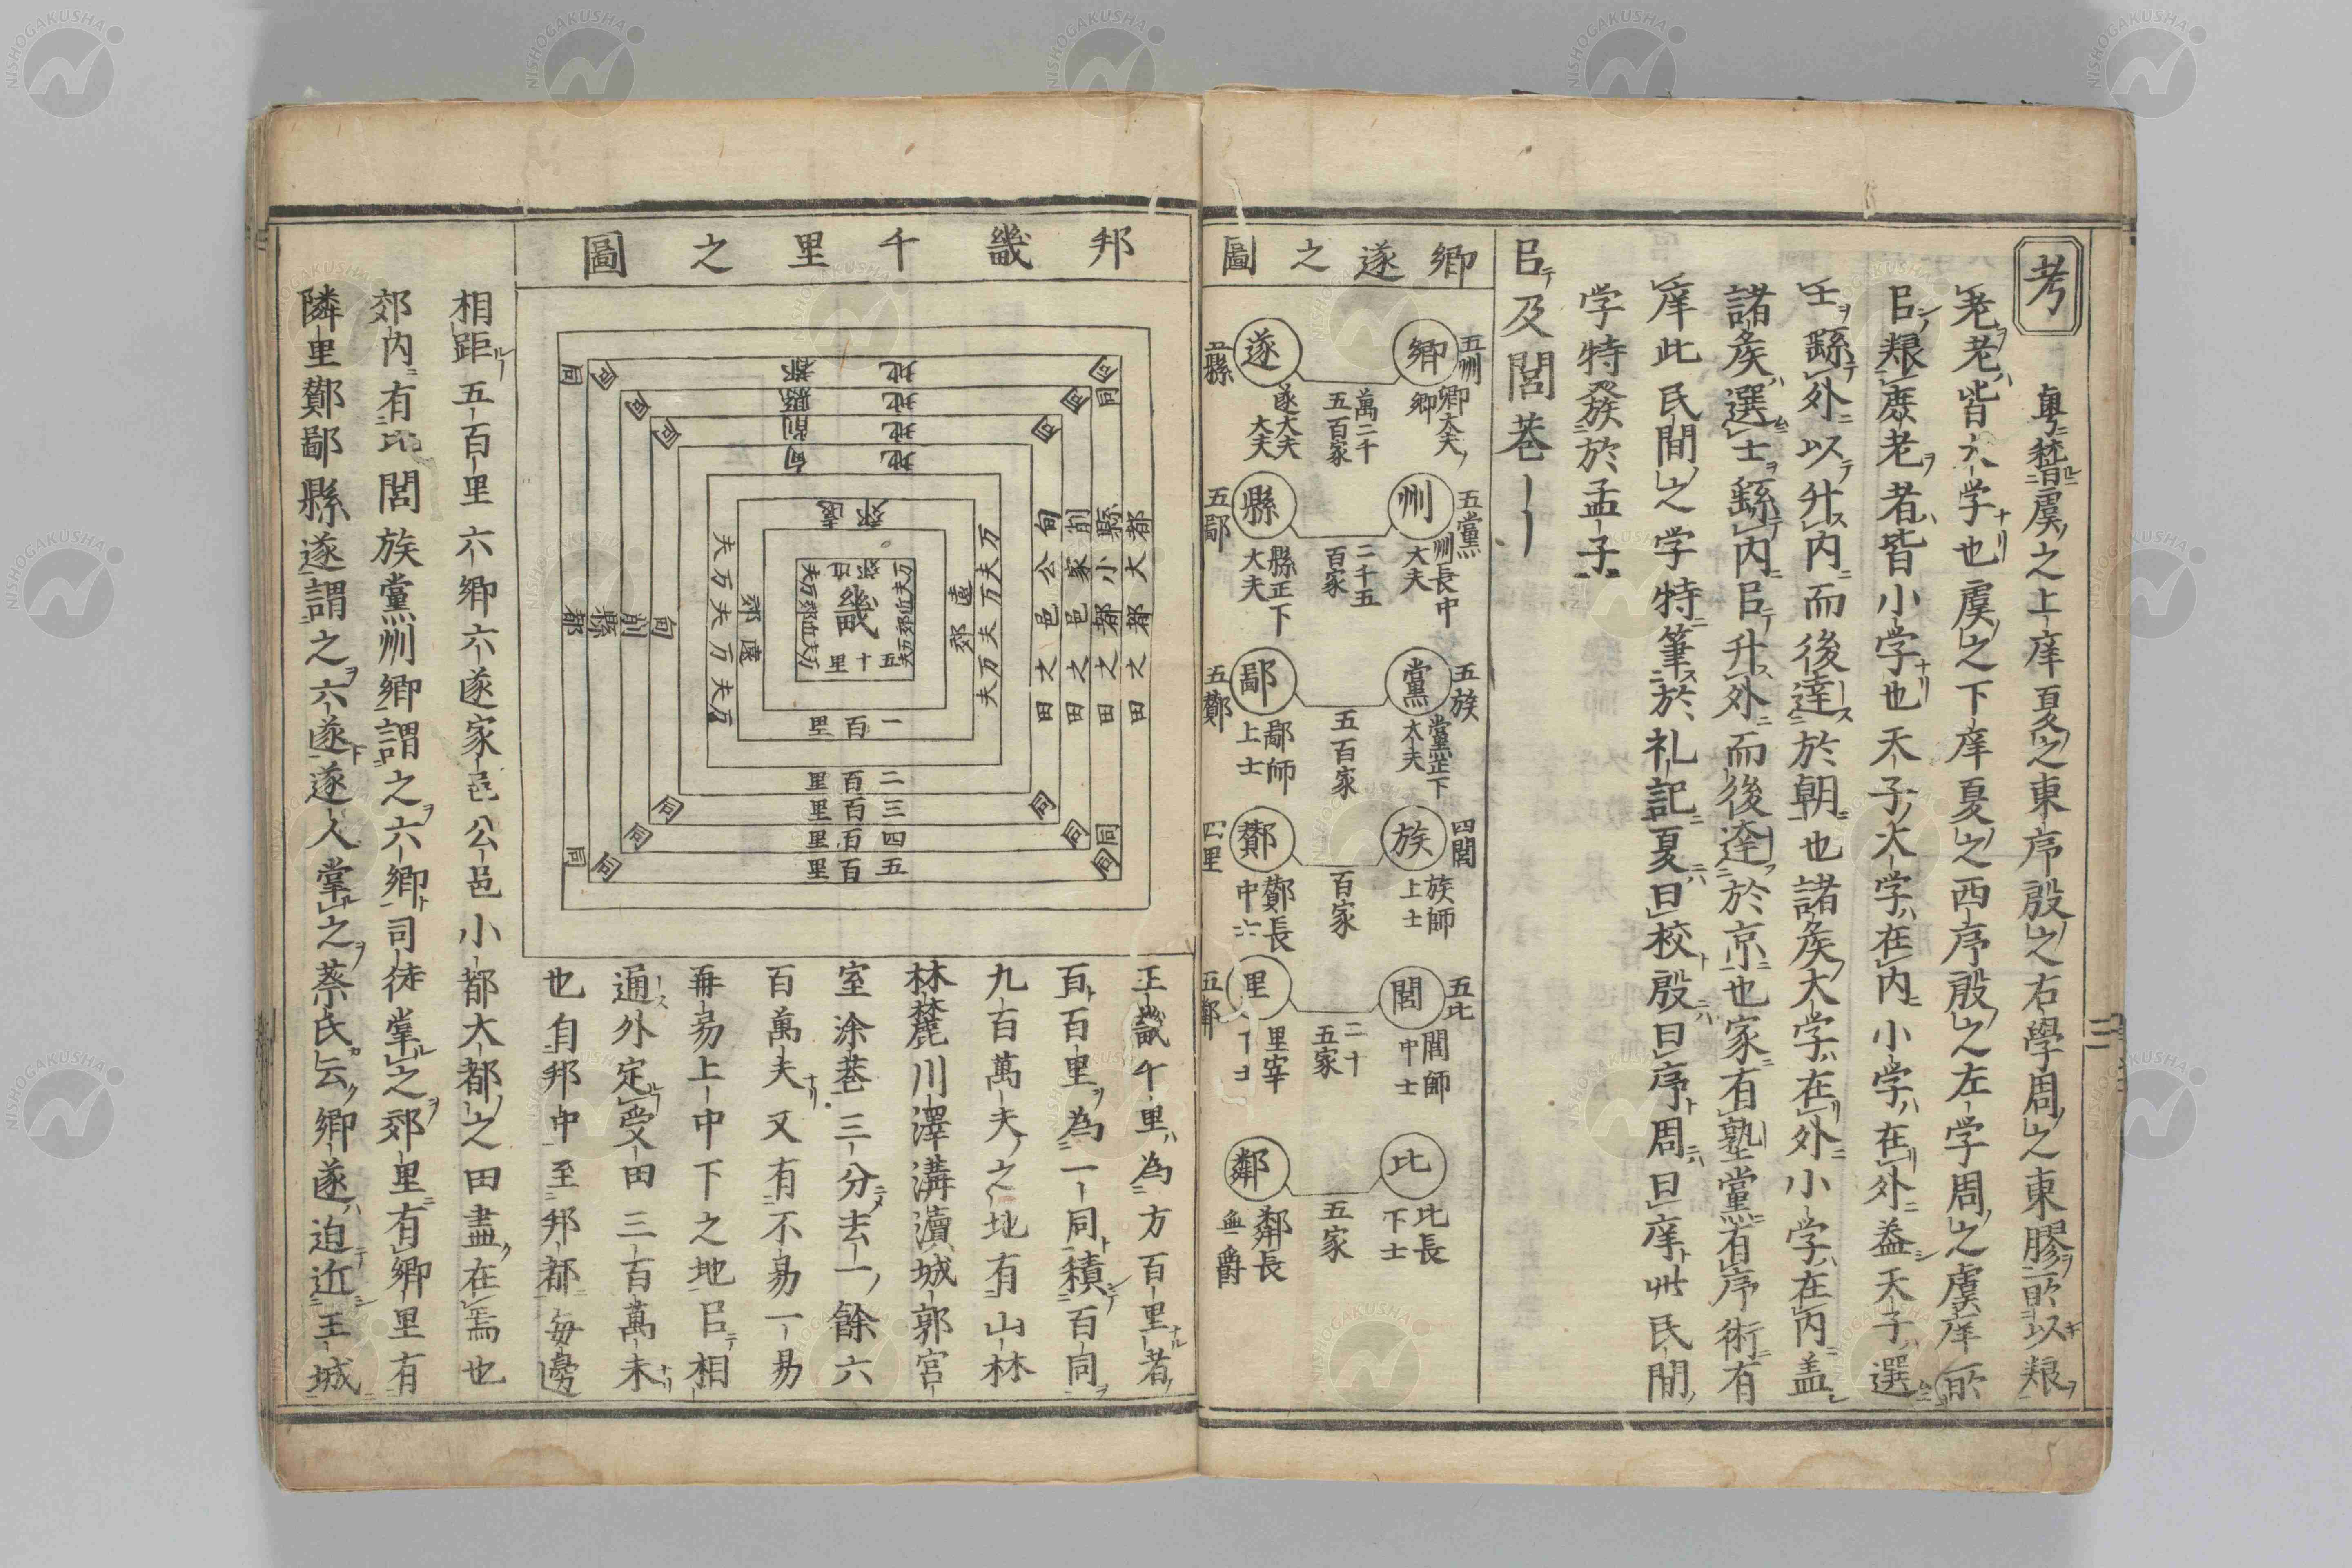 考
粤稽虞之上庠夏之東序殷之右學周之東膠所以粻
老老皆大学也虞之下庠夏之西序殷之左学周之虞庠所
㠯粻庶老者皆小学也天子大学在内小学在外盖天子選
士繇外以升内而後達於朝也諸矦大学在外小学在内盖
諸矦選士繇内㠯升外而後達於京也家有塾黨有序術有
庠此民間之学特筆於礼記夏曰校殷曰序周曰庠此民間
学特發於孟子
㠯及閭巷
鄉遂之圖
五州 鄉 鄉大夫卿
五縣 遂 遂大夫大夫
萬二千五百家
五黨 州 州長中大夫
五鄙 縣 縣正下大夫
二千五百家
五族 黨 黨正下大夫
五酇 鄙 鄙師上士
五百家
四閭 族 族師上士
四里 酇 酇長中士
百家
五比 閭 閭師中士
五鄰 里 里宰下士
二十五家
比 比長下士
鄰 鄰長無爵
五家
邦畿千里之圖
畿
五十里
一百里
二百里
三百里
四百里
五百里
遠郊
萬夫萬夫萬夫
甸公邑之田
削家邑之田
縣小都之田
都大都之田
甸地
削地
縣地
都地
同
王畿千里為方百里者
百百里為一同積百同
九百萬夫之地有山林
林麓川澤溝瀆城郭宮
室涂巷三分去一餘六
百萬夫又有不易一易
再易上中下之地㠯相
通外定受田三百萬夫
也自邦中至邦都每邊
相距五百里六鄉六遂家邑公邑小都大都之田盡在焉也
郊内有比閭族黨州鄉謂之六鄉司徒掌之郊里有鄉里有
隣里酇鄙縣遂謂之六遂遂人掌之蔡氏云鄉遂迫近王城
三